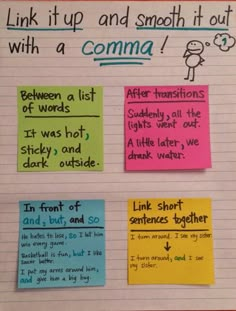 Link it up and smooth it out
with a comma!
?
Between a list
of words
It was hot,
sticky, and
dark outside.
After transitions
Suddenly, all the
lights went out.
A little later, we
drank water.
In front of
and, but, and so
He hates to lose, so I let him
win every game.
Basketball is fun, but I like
soccer better.
I put my arms around him,
and give him a big hug.
Link short
sentences together
I turn around. I see my sister.
I turn around, and I see
my sister.